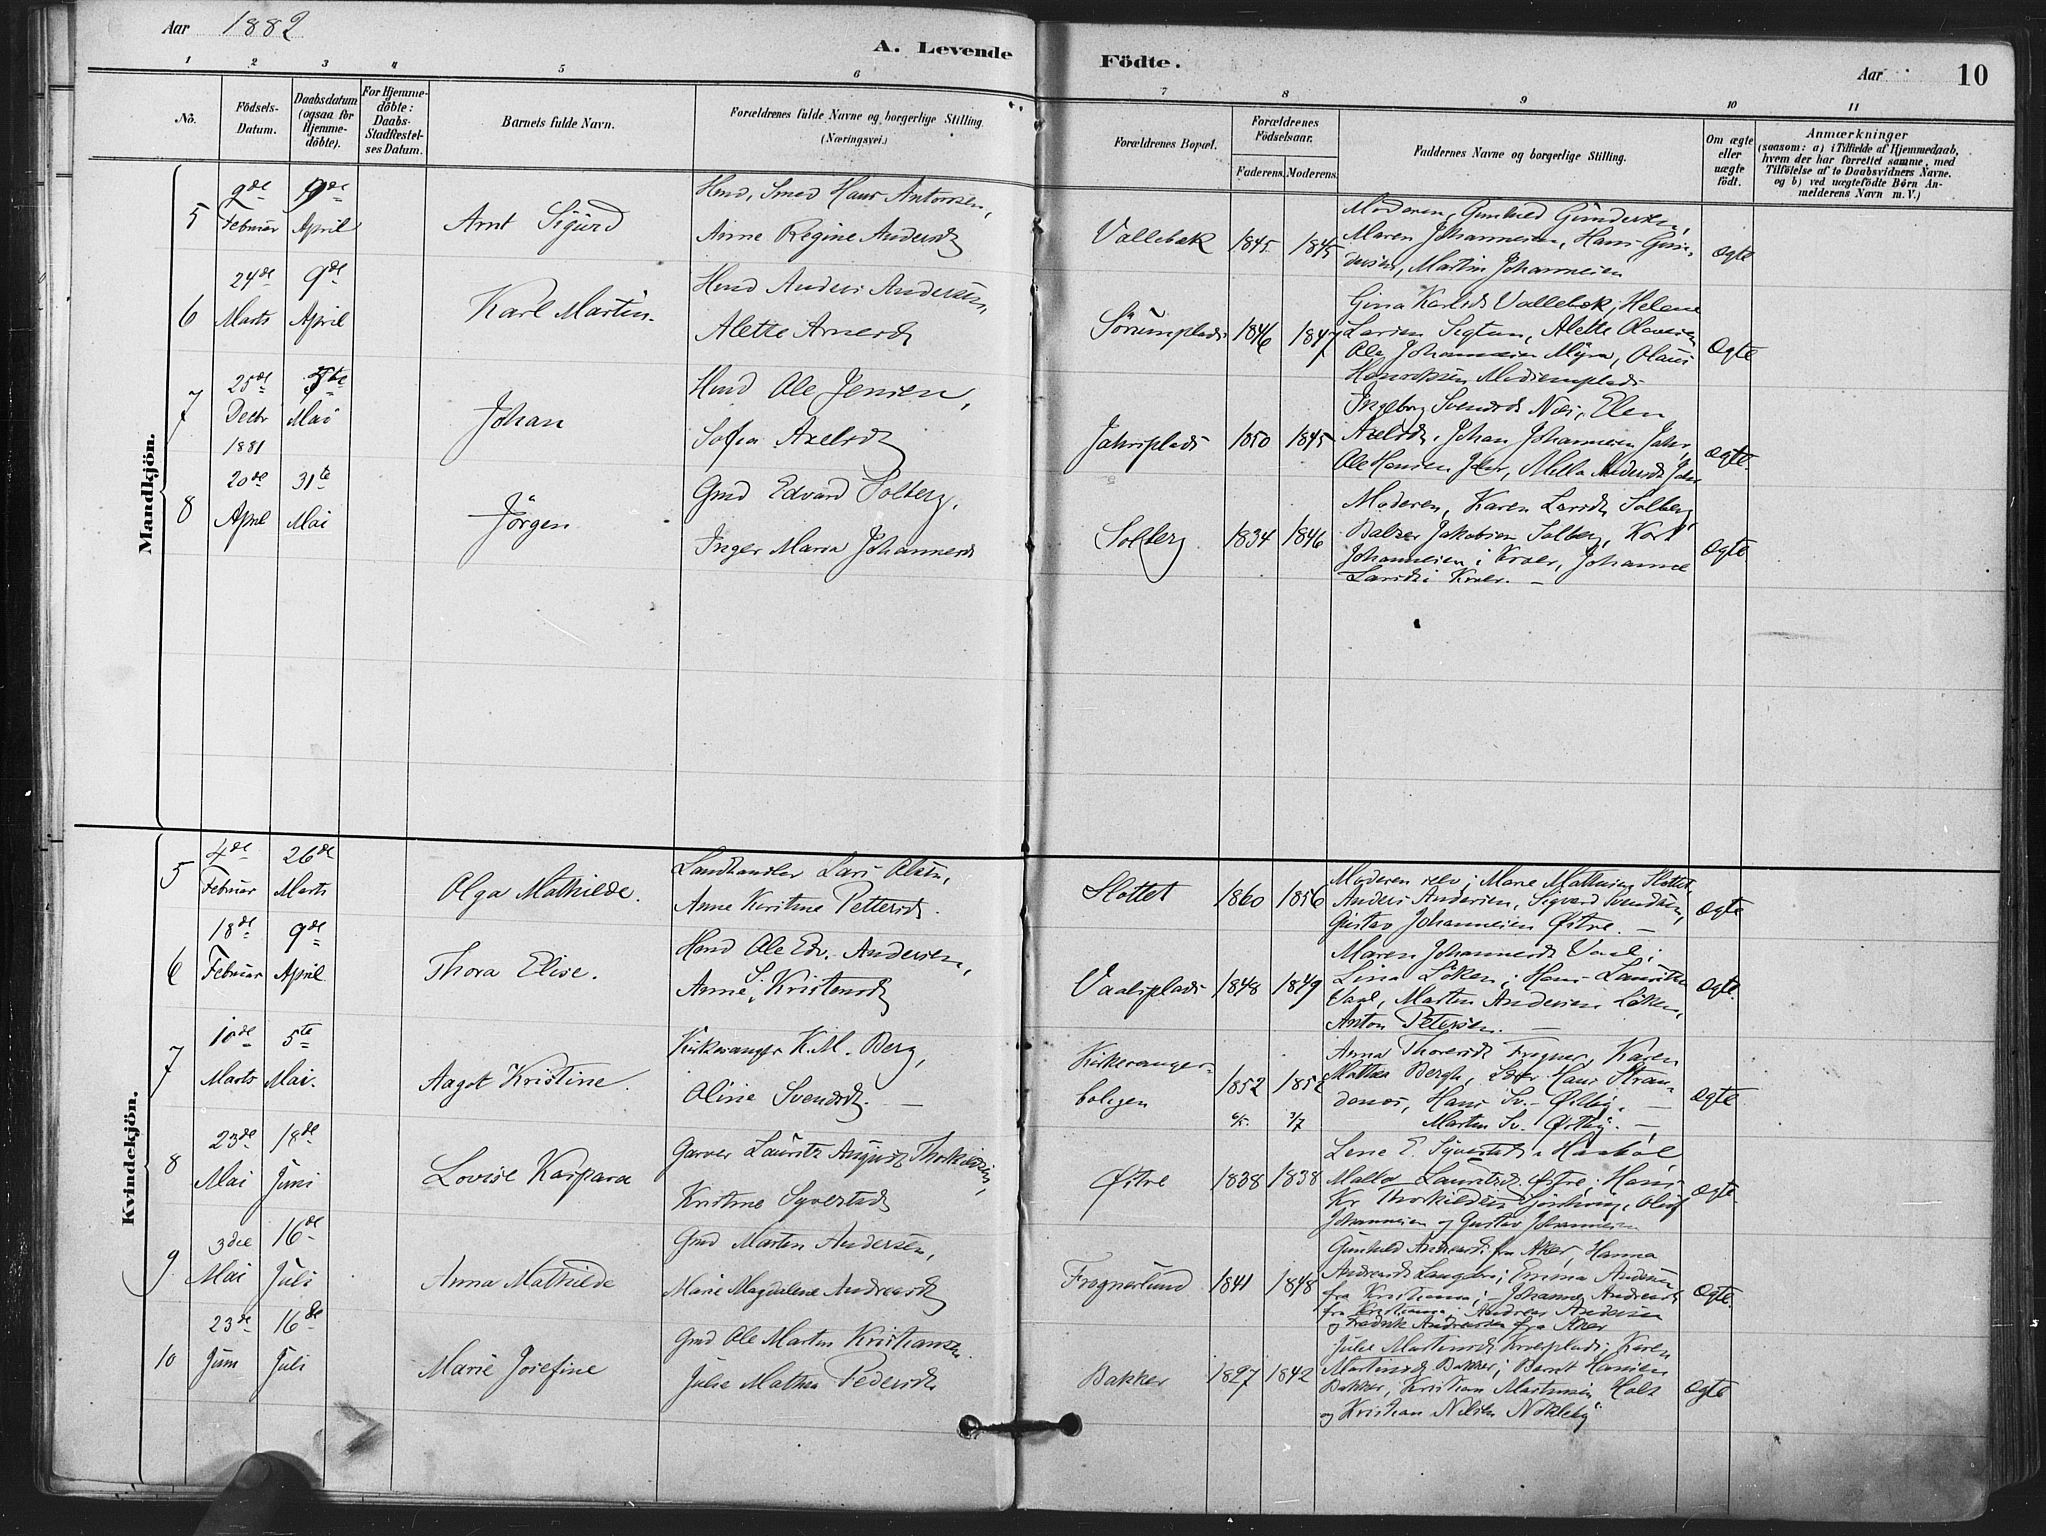 Aar 1882
A. Levende Födte.
Aar 10
1 2 3 4 5 6 7 8 9 10 11
No.
Födsels-Datum.
Daabsdatum (ogsaa for Hjemme-döbte).
For Hjemme-döbte: Daabs-Stadfæstel-ses Datum.
Barnets fulde Navn.
Forældrenes fulde Navne og borgerlige Stilling.
(Næringsvei.)
Forældrenes Bopæl.
Forældrenes Födselsaar.
Faderens. Moderens.
Faddernes Navne og borgerlige Stilling.
Om ægte eller uægte födt.
Anmærkninger
(saasom: a) i Tilfælde af Hjemmedaab, hvem der har forrettet samme, med Tilföielse af to Daabsvidners Navne. og b) ved uægtefödte Börn An-melderens Navn m. V.)
Mandkjön.
5
9de Februar
9de April
Arnt Sigurd
Hmd, Smed Hans Antonsen,
Anne Regine Andersdt
Vallebæk
1845 1845
Moderen, Gunhild Gundersen,
Maren Johannesen, Hans Gun-
dersen, Martin Johannesen
Ægte
6
24de Marts
9de April
Karl Martin.
Hmd Anders Andersen,
Alette Arnesdt
Sörumplads
1846 1847
Gina Karlsdt Vallebæk, Helene
Larsen Sigtun, Alette Olavesen
Ole Johannesen Myra, Olaus
Henriksen
Ægte
7
25de Decbr 1881
Mai
Johan
Hmd Ole Jensen,
Sofia Axelsdt
Jahrsplads
1050 1845
Ingeborg Svendsdt Næs, Elen
Axelsdt, Johan Johannesen Jahr,
Ole Hansen Jahr, Mella Andersdt Jahr
Ægte
8
20de April
31te Mai
Jörgen
Gmd Edvard Solberg,
Inger Maria Johannesdt
Solberg
1834 1846
Moderen, Karen Larsdt Solberg
Baltzer Jakobsen Solberg, Karl
Johannesen i Kroer, Johanne
Larsdt i Kroer. —
Ægte
Kvindekjön.
5
4de Februar
26de Marts
Olga Mathilde.
Landhandler Lars Olsen,
Anne Kirstine Pettersdt.
Slottet
1860 1856
Moderen selv, Marie Mathisen Slottet,
Anders Andersen, Sigvard Svendsen,
Gustav Johannesen Østre. —
Ægte
6
18de Februar
9de April
Thora Elise.
Hmd Ole Edv. Andersen,
Anne S. Kristensdt
Vaalsplads
1848 1849
Maren Johannesdt Vaal,
Lina Löken, Hans Lauritsen
Vaal, Martin Andersen Löken,
Anton Petersen. —
Ægte.
7
10de Marts
5te Mai.
Aagot Kristine.
Kirkesanger K. M. Berg,
Oline Svendsdt. —
Kirkesanger-
boligen
1852 1852
Anna Thoresdt Frogner, Karen
Mathea Bergh, Hans Stran-
denæs, Hans Sv. Østby. —
Martin Sv. Østby. —
Ægte
8
23de Mai
18de Juni
Lovise Kaspara
Garver Lauritz August Thorkildsen,
Kristine Syvertsdt
Østre
1838 1838
Lene E. Syvertsdt
Malla Lauritsdt. Østre. Hans
Kr Thorkildsen Oluf
Johannesen og Gustav Johannesen
Ægte
9
3die Mai
16de Juli
Anna Mathilde
Gmd Martin Andersen,
Marie Magdalene Andreasdt
Frognerlund
1841 1848
Gunhild Andreasdt fra Aker, Hanna
Andreasdt Langbro; Emma Andersen
fra Kristiania; — Johannes Andreasdt
fra Kristiania, Andreas Andersen
og Fredrik Andreassen fra Aker
Ægte.
10
23de Juni
16de Juli
Marie Josefine
Gmd Ole Martin Kristiansen.
Julie Mathea Pedersdt
Bakker
1827 1842
Julie Martinsdt Kroerplads, Karen
Martinsdt Bakker; Berndt Hansen
Bakker, Kristian Martinsen Holt
og Kristian Nilsen Nökleby
Ægte